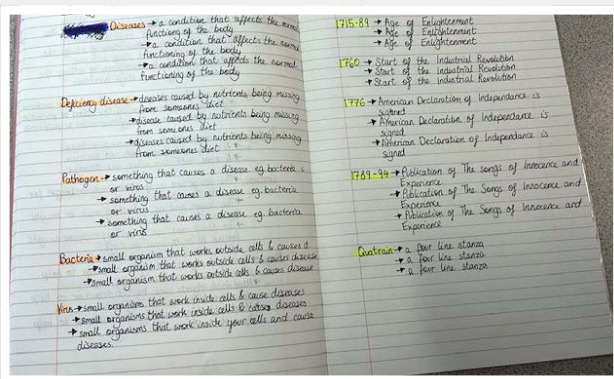 Diseases → a condition that affects the normal
functiong of the body
→ a condition that affects the normal
functioning of the body
→ a condition that affects the normal
functioning of the body
Deficiency disease → diseases caused by nutrients being missing
from someones diet
→ disease caused by nutrients being missing
from someones diet
→ diseases caused by nutrients being missing
from someones diet
Pathogen → something that causes a disease eg. bacteria
or virus
→ something that causes a disease eg. bacteria
or virus
→ something that causes a disease eg. bacteria
or virus
Bacteria → small organism that works outside cells & causes d
→ small organism that works outside cells & causes disease
→ small organism that works outside cells & causes disease
Virus → small organisms that work inside cells & cause diseases
→ small organisms that work inside cells & cause diseases
→ small organisms that work inside your cells and cause
diseases.
1715-89 → Age of Enlightenment
→ Age of Enlightenment
→ Age of Enlightenment
1760 → Start of the Industrial Revolution
→ Start of the Industrial Revolution
→ Start of the Industrial Revolution
1776 → American Declaration of Independance is
signed
→ American Declaration of Independance is
signed
→ American Declaration of Independance is
signed
1789-94 → Publication of The songs of Innocence and
Experience
→ Publication of The Songs of Innocence and
Experience
→ Publication of The Songs of Innocence and
Experience
Quatrain → a four line stanza
→ a four line stanza
→ a four line stanza